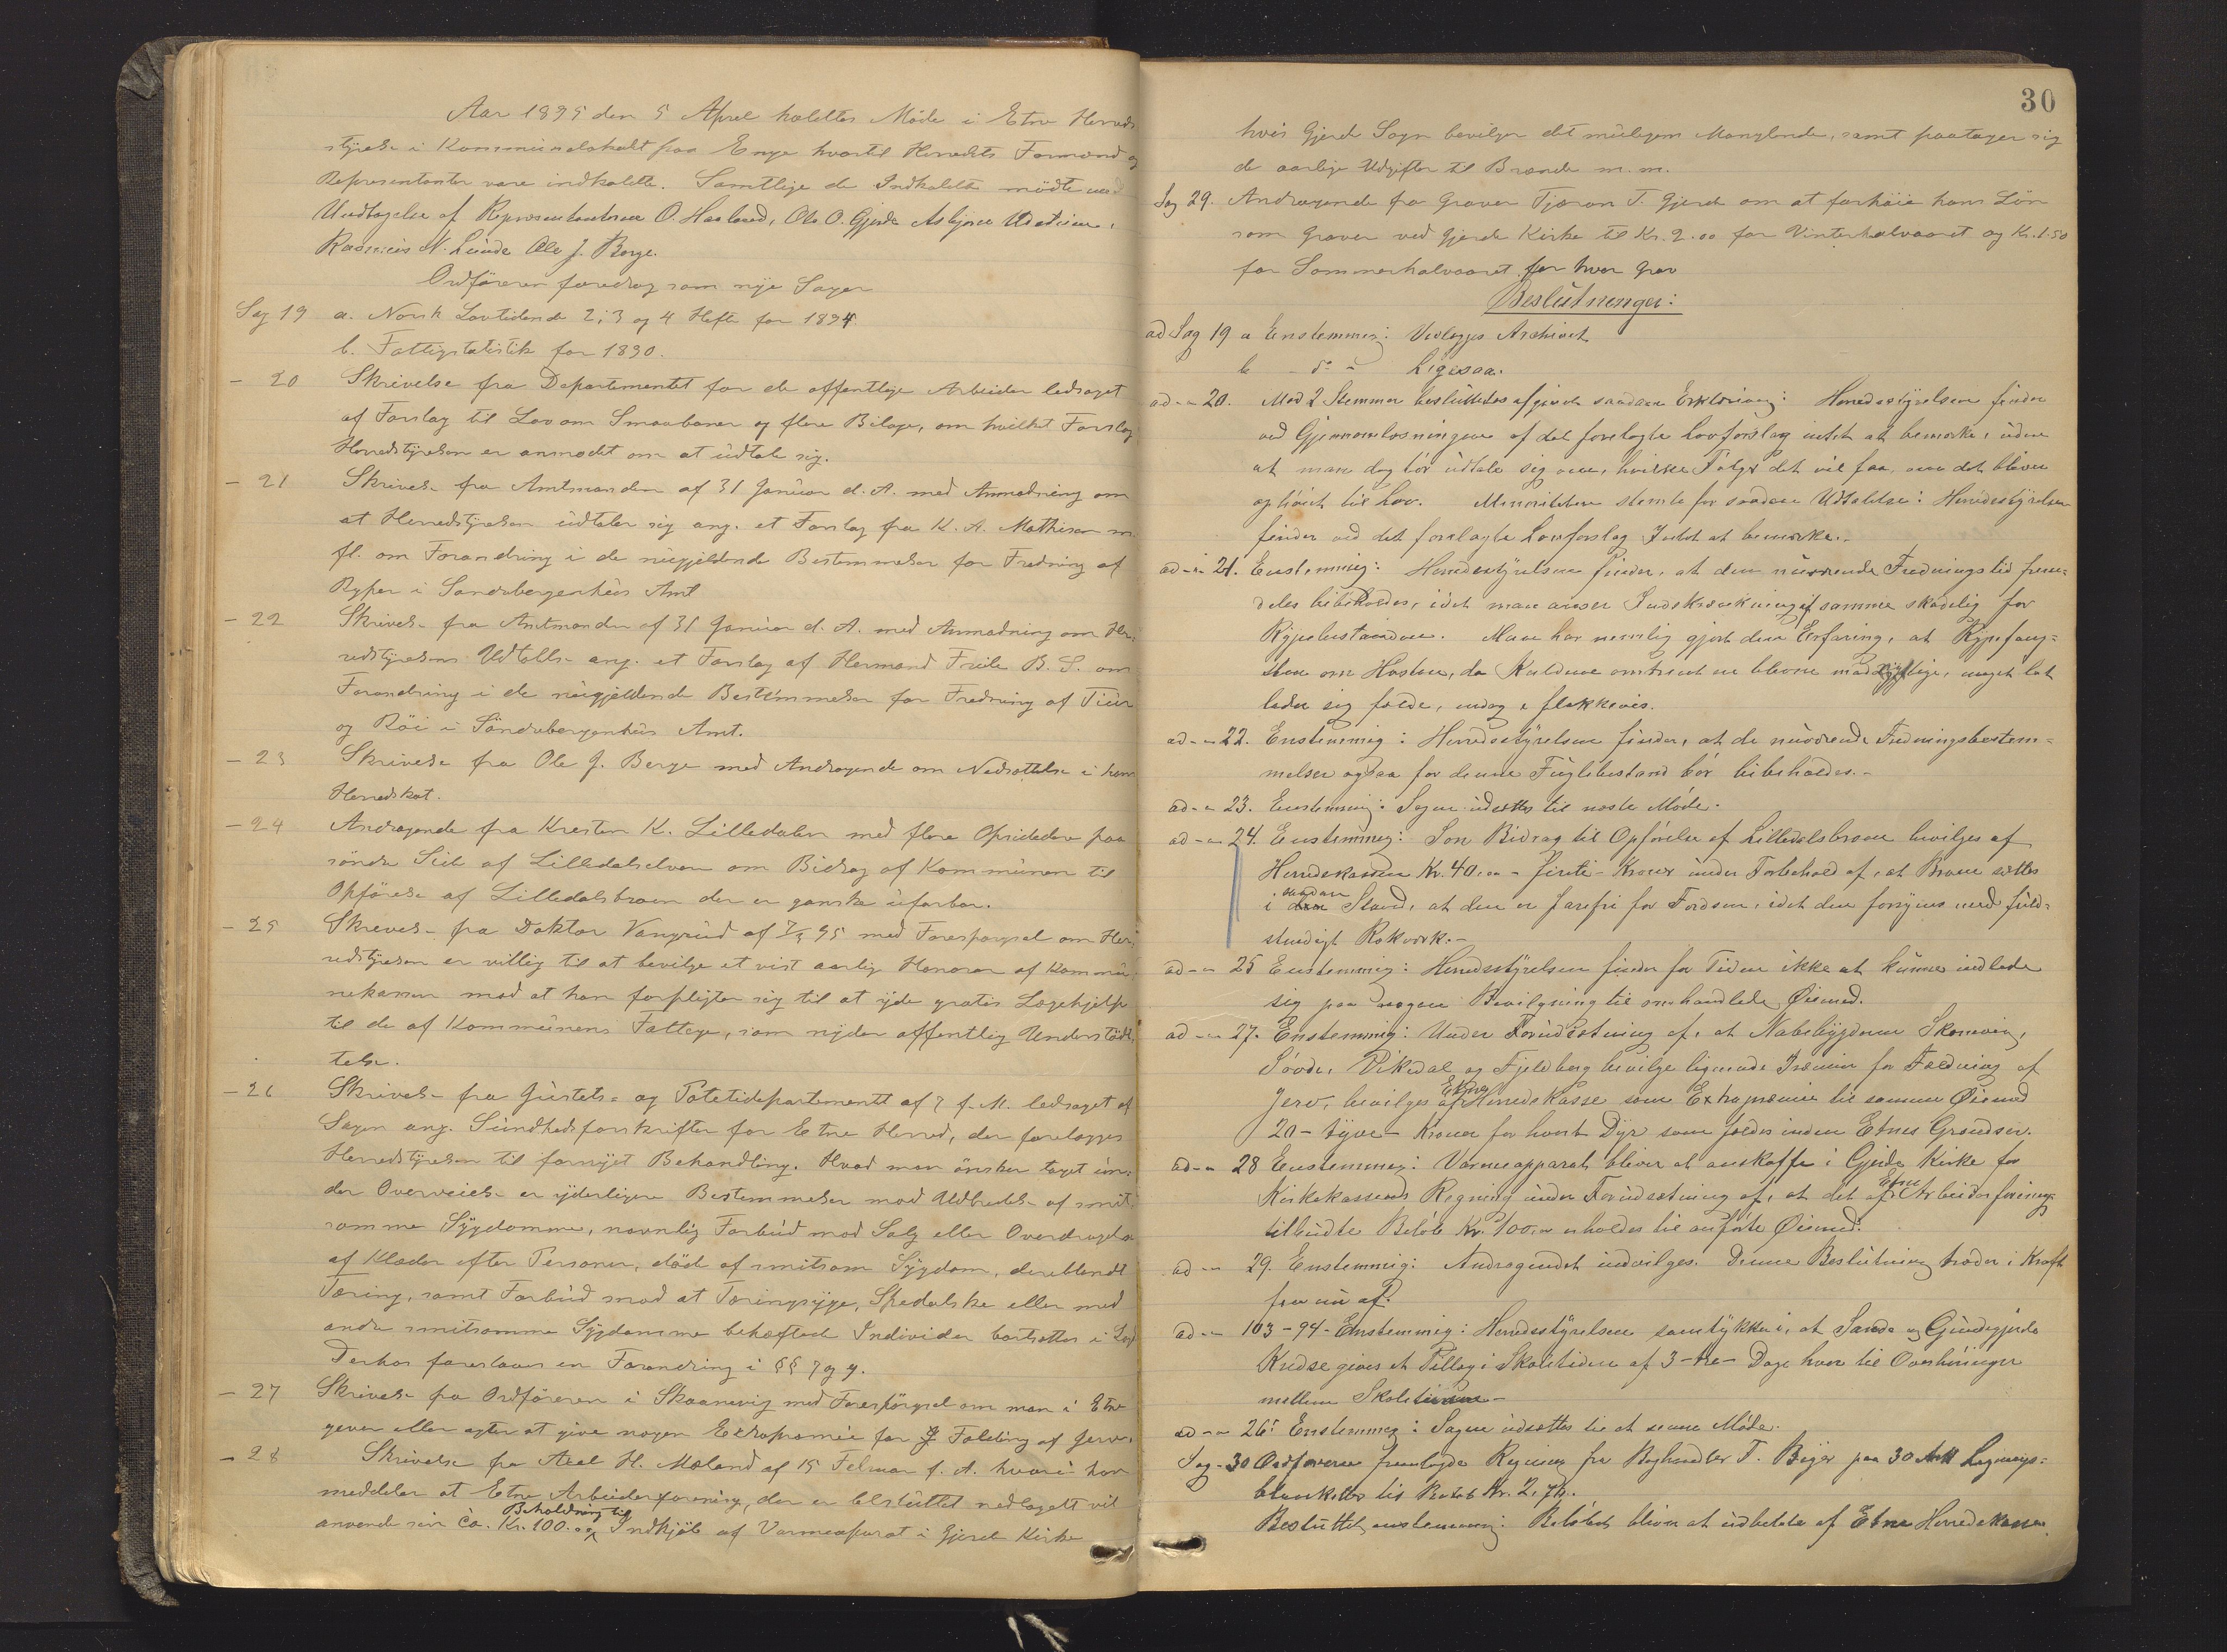 Aar 1895 den 5 April holdtes Møde i Etne Herreds
styrelse i Kommunelokalet paa Enge hvortil Herredets Formænd og
Repræsentanter vare indkaldte. Samtlige de Indkaldte mødte med
Undtagelse af Repræsentanterne O. Haaland, Ole O. Gjerde Asbjørn
Rasmus N. Lunde Ole J. Berge.
Ordføreren foredrog som nye Sager
Sag 19 a. Norsk Lovtidende 2, 3 og 4 Hefte for 1894.
b. Fattigstatistik for 1890.
- 20 Skrivelse fra Departementet for de offentlige Arbeider ledsaget
af Forslag til Lov om Smaabaner og flere Bilage, om hvilket Forslag
Herredstyrelsen er anmodet om at udtale sig.
- 21 Skrivelse fra Amtmanden af 31 Januar d. A. med Anmodning om
at Herredstyrelsen udtaler sig ang. et Forslag fra K. A. Mathisen m.
fl. om Forandring i de nugjeldende Bestemmelser for Fredning af
Ryper i Søndrebergenhus Amt
- 22 Skrivelse fra Amtmanden af 31 Januar d. A. med Anmodning om Her-
redstyrelsens Udtalelse ang. et Forslag af Hermand Friele B. S. om
Forandring i de nugjeldende Bestemmelser for Fredning af Tiur
og Røi i Søndrebergenhus Amt.
- 23 Skrivelse fra Ole J. Berge med Andragende om Nedsættelse i hans
Herredskat.
- 24 Andragende fra Kresten K. Lilledalen med flere Opsiddere paa
søndre Side af Lilledalselven om Bidrag af Kommunen til
Opførelse af Lilledalsbroen der er ganske ufarbar.
- 25 Skrivelse fra Doktor Vangrud af 7/3 95 med Forespørgsel om Her-
redstyrelsen er villig til at bevilge et vist aarlig Honorar af Kommu-
nekassen mod at han forpligter sig til at yde gratis Lægehjelp
til de af Kommunens Fattige, som nyder offentlig Understøt-
telse.
- 26 Skrivelse fra Justets- og Politidepartementt af 7 f. M. ledsaget af
Sagen ang. Sundhedsforskrifter for Etne Herred, der forelægges
Herredstyrelsen til fornyet Behandling. Hvad man ønsker taget un-
der Overveielse er yderligere Bestemmelser mod Udbredelse af smit-
somme Sygdomme, navnlig Forbud mod Salg eller Overdragelse
af Klæder efter Personer, død af smitsom Sygdom, deriblandt
Tæring, samt Forbud mod at Tæringsyge, Spedalske eller med
andre smitsomme Sygdomme behæftede Individer bortsættes i Lægd
Derhos foreslaaes en Forandring i §§ 7 og 9.
- 27 Skrivelse fra Ordføreren i Skaanevig med Forespørgsel om man i Etne
giver eller agter at give nogen Extrapræmie for Fælding af Jerv.
- 28 Skrivelse fra Axel H. Mæland af 15 Februar f. A. hvori han
meddeler at Etne Arbeiderforening, der er besluttet nedlagt vil
anvende sin Beholdning ca. Kr. 100.00 til Indkjøb af Varmeaparat i Gjerde Kirke
30
hvis Gjerde Sogn bevilger det muligens Manglende, samt paatager sig
de aarlige Udgifter til Brænde m.m.
Sag 29. Andragende fra Graver Tjæran T. Gjerde om at forhøie hans Løn
som Graver ved Gjerde Kirke til Kr. 2.00 for Vinterhalvaaret og Kr. 1.50
for Sommerhalvaaret for hver Grav
Beslutninger:
ad Sag 19 a Enstemmig: Vedlægges Archivet
b - do - Ligesaa.
ad - 20. Mod 2 Stemmer besluttedes afgivet saadan Erklæring: Herredsstyrelsen finder
ved Gjennemlæsningen af det forelagte Lovforslag intet at bemærke, uden
at man dog tør udtale sig om, hvilke Følger det vil faa, om det bliver
ophøiet til Lov. Minoriteten stemte for saadan Udtalelse: Herredsstyrelsen
finder ved det forelagte Lovforslag Intet at bemærke.-
ad - 21. Enstemmig: Herredsstyrelsen finder, at den nuværende Fredningstid frem-
deles bibeholdes, idet man anser Indskrænkning af samme skadelig for
Rypebestanden. Man har nemlig gjort den Erfaring, at Rypefang-
sten om Høsten, da Kuldene omtrent er blevne meget let
lader sig fælde, endog i flokkevis.
ad - 22. Enstemmig: Herredsstyrelsen finder, at de nuværende Fredningsbestem-
melser ogsaa for denne Fuglebestand bør bibeholdes.-
ad - 23. Enstemmig: Sagen udsættes til næste Møde.
ad - 24. Enstemmig: Som Bidrag til Opførelse af Lilledalsbroen bevilges af
Herredskassen Kr. 40.00 - firti - Kroner under Forbehold af, at Broen sættes
i saadan Stand, at den er farefri for Færdsen, idet den forsynes med fuld-
stændigt Rækværk.-
ad - 25 Enstemmig: Herredsstyrelsen finder for Tiden ikke at kunne indlade
sig paa nogen Bevilgning til omhandlede Øiemed.
ad - 27. Enstemmig: Under Forudsætning af, at Nabobygderne Skonevig,
Søvde, Vikedal og Fjeldberg bevilge lignende Præmier for Fældning af
Jerv, bevilges af Etne Herredskasse som Extrapræmie til samme Øiemed
20 - tyve - Kroner for hvert Dyr som fældes inden Etnes Grændser.
ad - 28 Enstemmig: Varmeapparat bliver at anskaffe i Gjerde Kirke for
Kirkekassens Regning under Forudsætning af, at det af Etne Arbeiderforening
tilbudte Beløb Kr. 100.00 erholdes til anførte Øiemed.
ad - 29. Enstemmig: Andragendet indvilges. Denne Beslutning træder i Kraft
fra nu af.
ad - 103-94 - Enstemmig: Herredsstyrelsen samtykker i, at Sande og Gjerde
Kredse gives et Tillæg i Skoletiden af 3 - tre - Dage hver til Overhøringer
mellem
ad - 26: Enstemmig: Sagen udsættes til et senere Møde.
Sag - 30 Ordføreren fremlagde Regning fra Boghandler F. Beyer paa 30 Ark Lignings-
blanketter til Beløb Kr. 2.70.
Besluttet enstemmig: Beløbet bliver at udbetale af Etne Herredskasse.